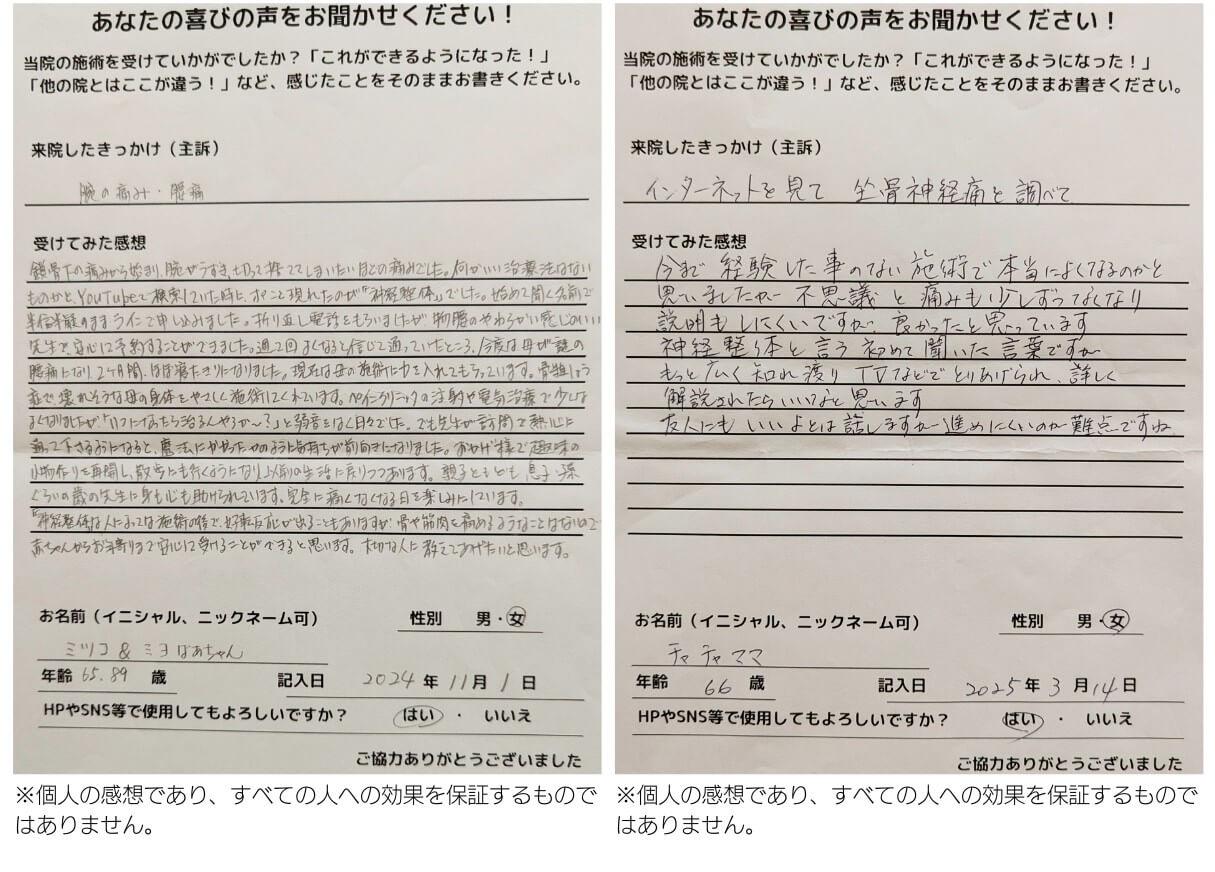 あなたの喜びの声をお聞かせください！
当院の施術を受けていかがでしたか？「これができるようになった！」
「他の院とはここが違う！」など、感じたことをそのままお書きください。
来院したきっかけ（主訴）
腕の痛み・腰痛
受けてみた感想
鎖骨下の痛みから始まり、腕がうずき、切って捨ててしまいたいほどの痛みでした。何かいい治療法はない
ものかと、YouTubeで検索していた時に、すっと現れたのが「神経整体」でした。始めて聞く名前で
半信半疑のままラインで申し込みました。折り返し電話をもらいましたが物腰のやわらかい感じのいい
先生で、安心して予約することができました。週1回よくなると信じて通っていたところ、今度は母が謎の
腰痛になり、2ヶ月間、ほぼ寝たきりになりました。現在は母の施術に力を入れてもらっています。骨粗しょう
症で壊れそうな母の身体をやさしく施術してくれています。ペインクリニックの注射や電気治療で少しは
よくなりましたが「いつになったら治るんやろか〜？」と弱音をはく日々でした。でも先生が訪問で熱心に
通って下さるようになると、魔法にかかったかのように気持ちが前向きになりました。おかげ様で趣味の
小物作りを再開し、散歩にも行くようになり、以前の生活に戻りつつあります。親子ともども息子・孫
ぐらいの歳の先生に身も心も助けられています。完全に痛くなくなる日を楽しみにしています。
「神経整体」は人によっては施術の後で、好転反応が出ることもありますが、骨や筋肉を痛めるようなことはないので
赤ちゃんからお年寄りまで安心して受けることができると思います。大切な人に教えてあげたいと思います。
お名前（イニシャル、ニックネーム可） 性別 男・女
ミツコ & ミヨばあちゃん
年齢 65.89 歳 記入日 2024 年 11 月 1 日
HPやSNS等で使用してもよろしいですか？ はい ・ いいえ
ご協力ありがとうございました
※個人の感想であり、すべての人への効果を保証するもので
はありません。
あなたの喜びの声をお聞かせください！
当院の施術を受けていかがでしたか？「これができるようになった！」
「他の院とはここが違う！」など、感じたことをそのままお書きください。
来院したきっかけ（主訴）
インターネットを見て 坐骨神経痛と調べて
受けてみた感想
今まで経験した事のない施術で本当によくなるのかと
思いましたが 不思議と痛みも少しずつなくなり
説明もしにくいですが、良かったと思っています
神経整体と言う初めて聞いた言葉ですが
もっと広く知れ渡り TVなどでとりあげられ、詳しく
解説されたらいいなと思います
友人にもいいよとは話しますが進めにくいのが難点ですね
お名前（イニシャル、ニックネーム可） 性別 男・女
チャチャママ
年齢 66 歳 記入日 2025 年 3 月 14 日
HPやSNS等で使用してもよろしいですか？ はい ・ いいえ
ご協力ありがとうございました
※個人の感想であり、すべての人への効果を保証するもので
はありません。